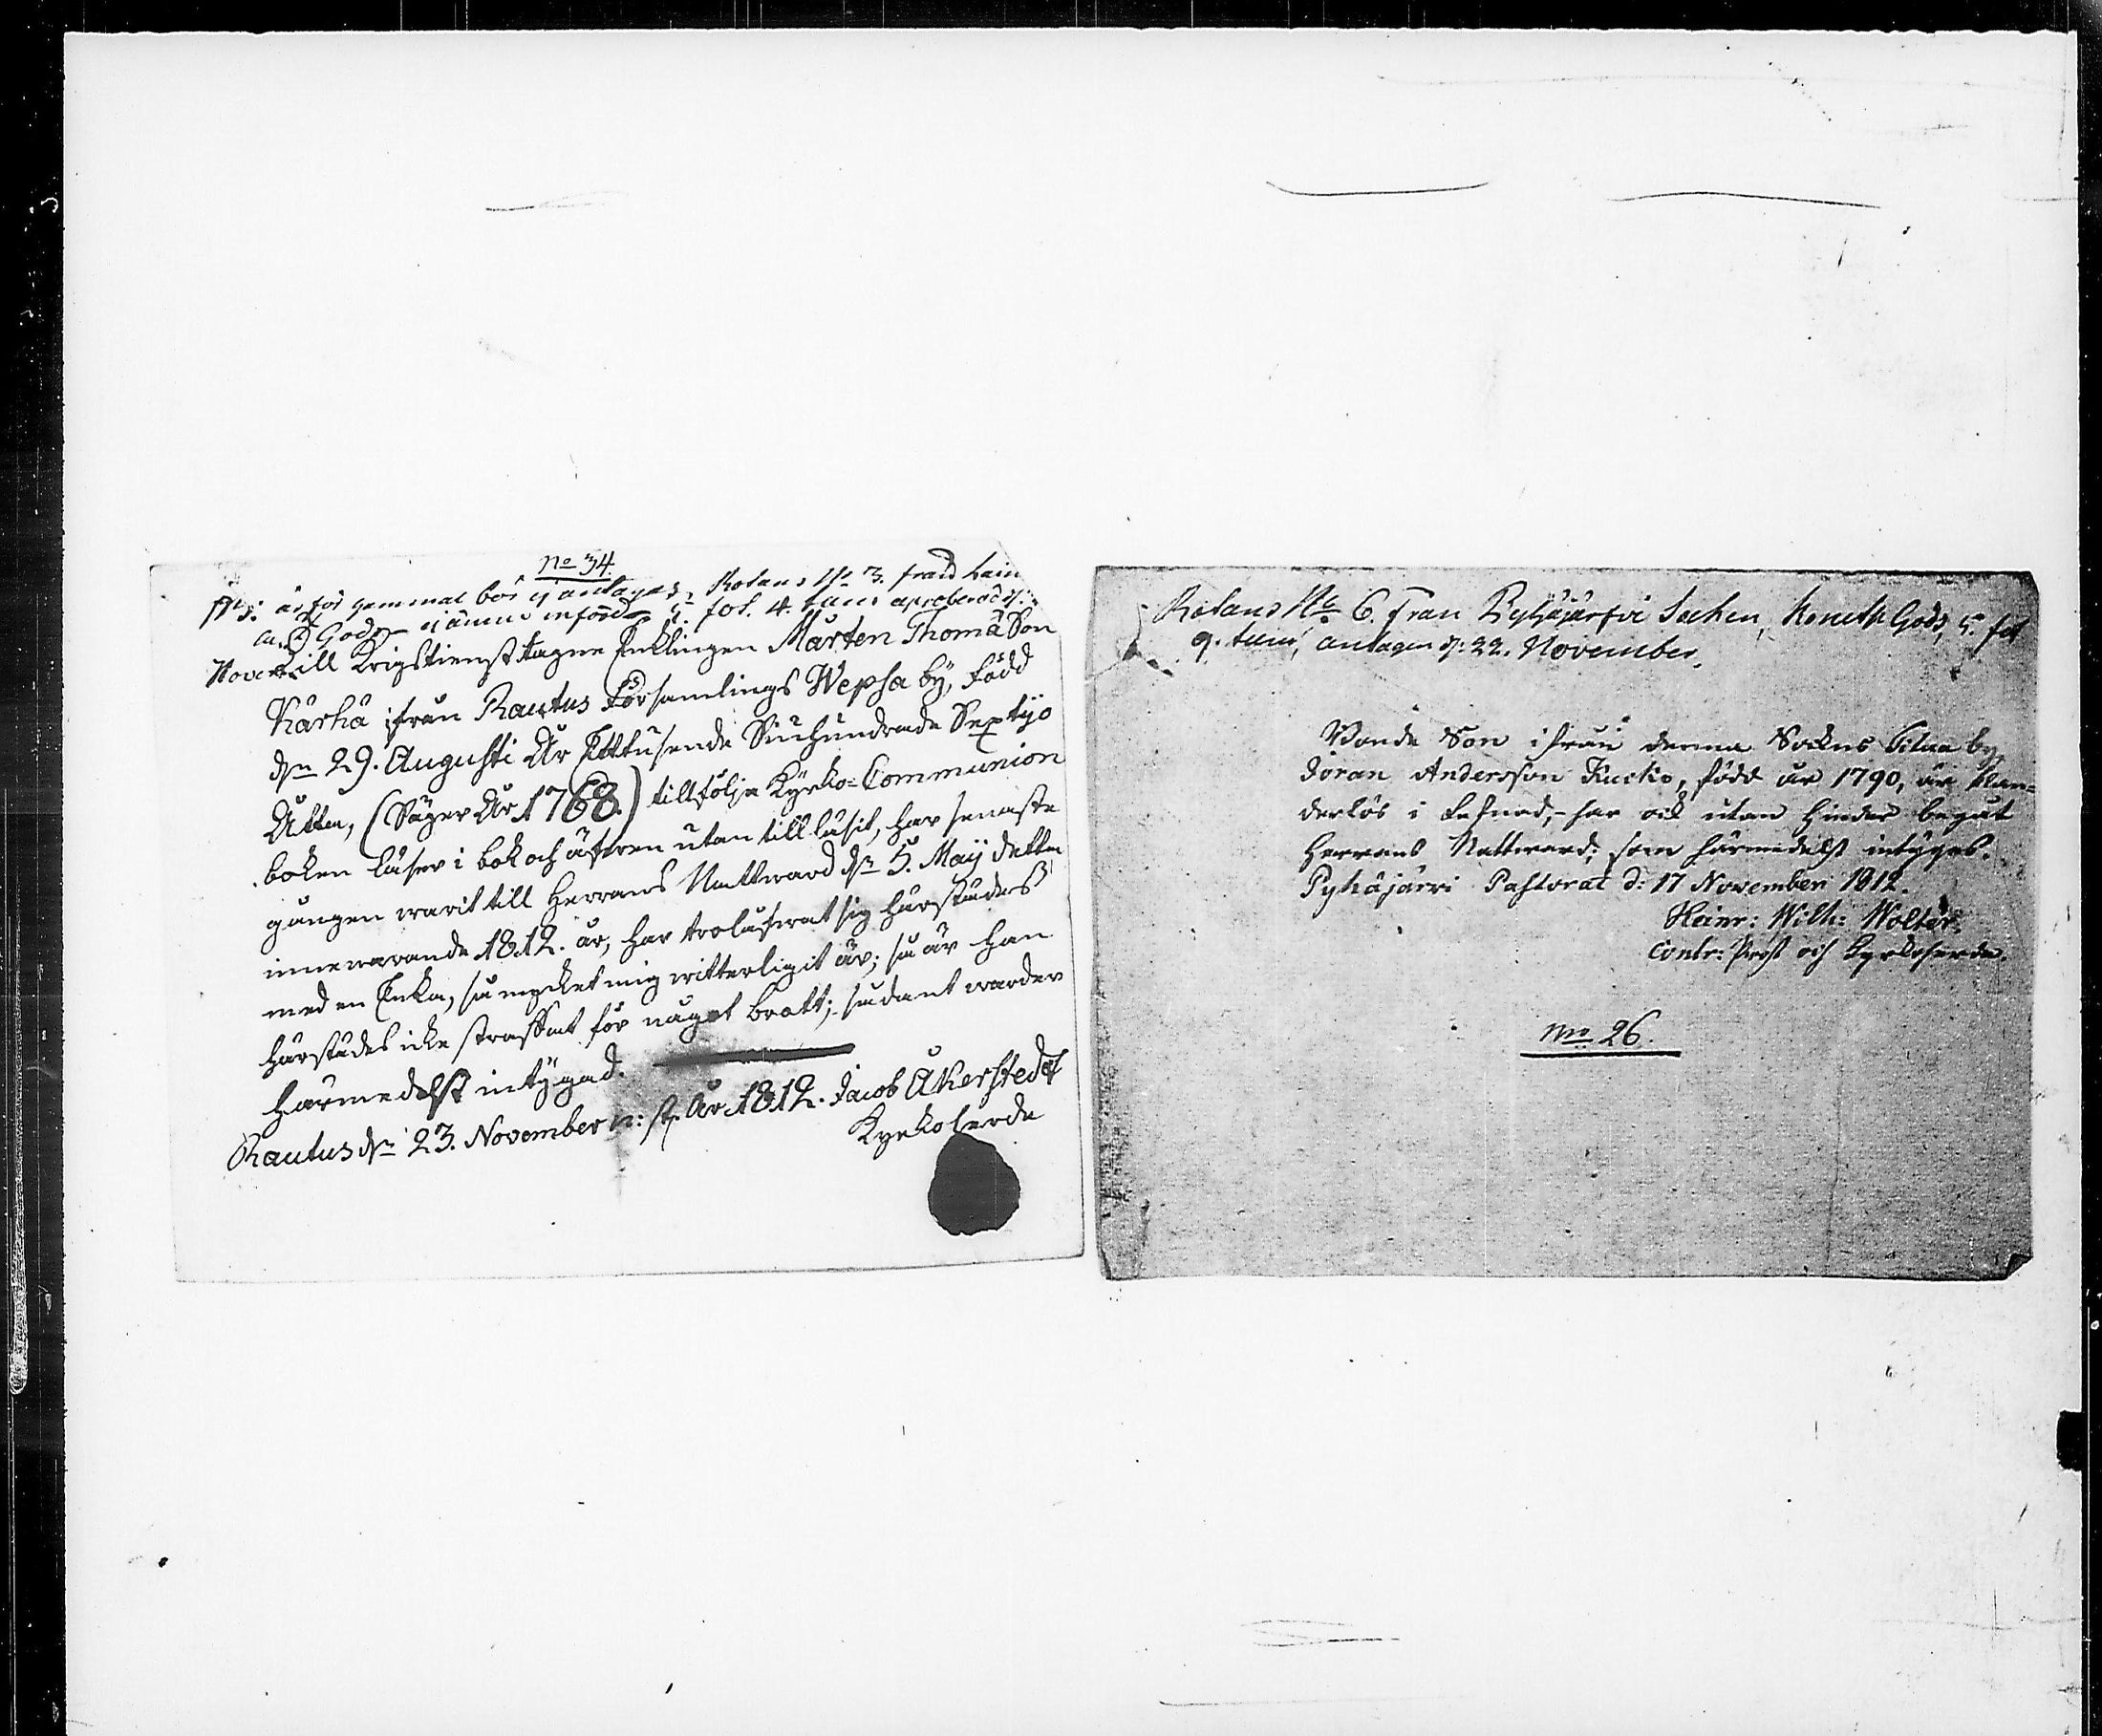 No 34.
är för gammal bör ej antagas, Rotans No 3. från
Gods 5. fot. 4. tum aproberad d:
Till Krigstienst tagne Enklingen Mårten Thomä Son
Kärhä ifrån Rautus Församlings Wepsa by, född
dn 29. Augusti År Ett tusende Siuhundrade Sextijo
Åtta, (Säger År 1768.) till följe Kyrko-Communion
boken läser i bok och äfven utan till låsit, har senaste
gången warit till Herrans Nattward dn 5. Maij detta
innewarande 1812. år, har trolåfwat sig härstädes
med en Enka, så mycket mig witterligit är; så är han
härstädes icke straffat för något brott; sådant warder
härmedelst intygad.
Rautus dn 23. November n: st. År 1812. Jacob Åkerstedt
Kyrkoherde
Rotans No 6. från Pyhäjärfvi Sochen, Gods, 5. fot
9. tum, antagen d: 22. November.
Bonde Son ifrån denna Sockns by
Jöran Andersson Kuckο, född år 1790, är klan-
derlös i lefnad, har ock utan hinder begåt
Herrans Nattward; som härmedelst intyges.
Pyhäjärvi Pastorat d: 17 November 1812.
Heinr: Wilh: Wolter.
Contr: Prost och Kyrkoherde.
No 26.